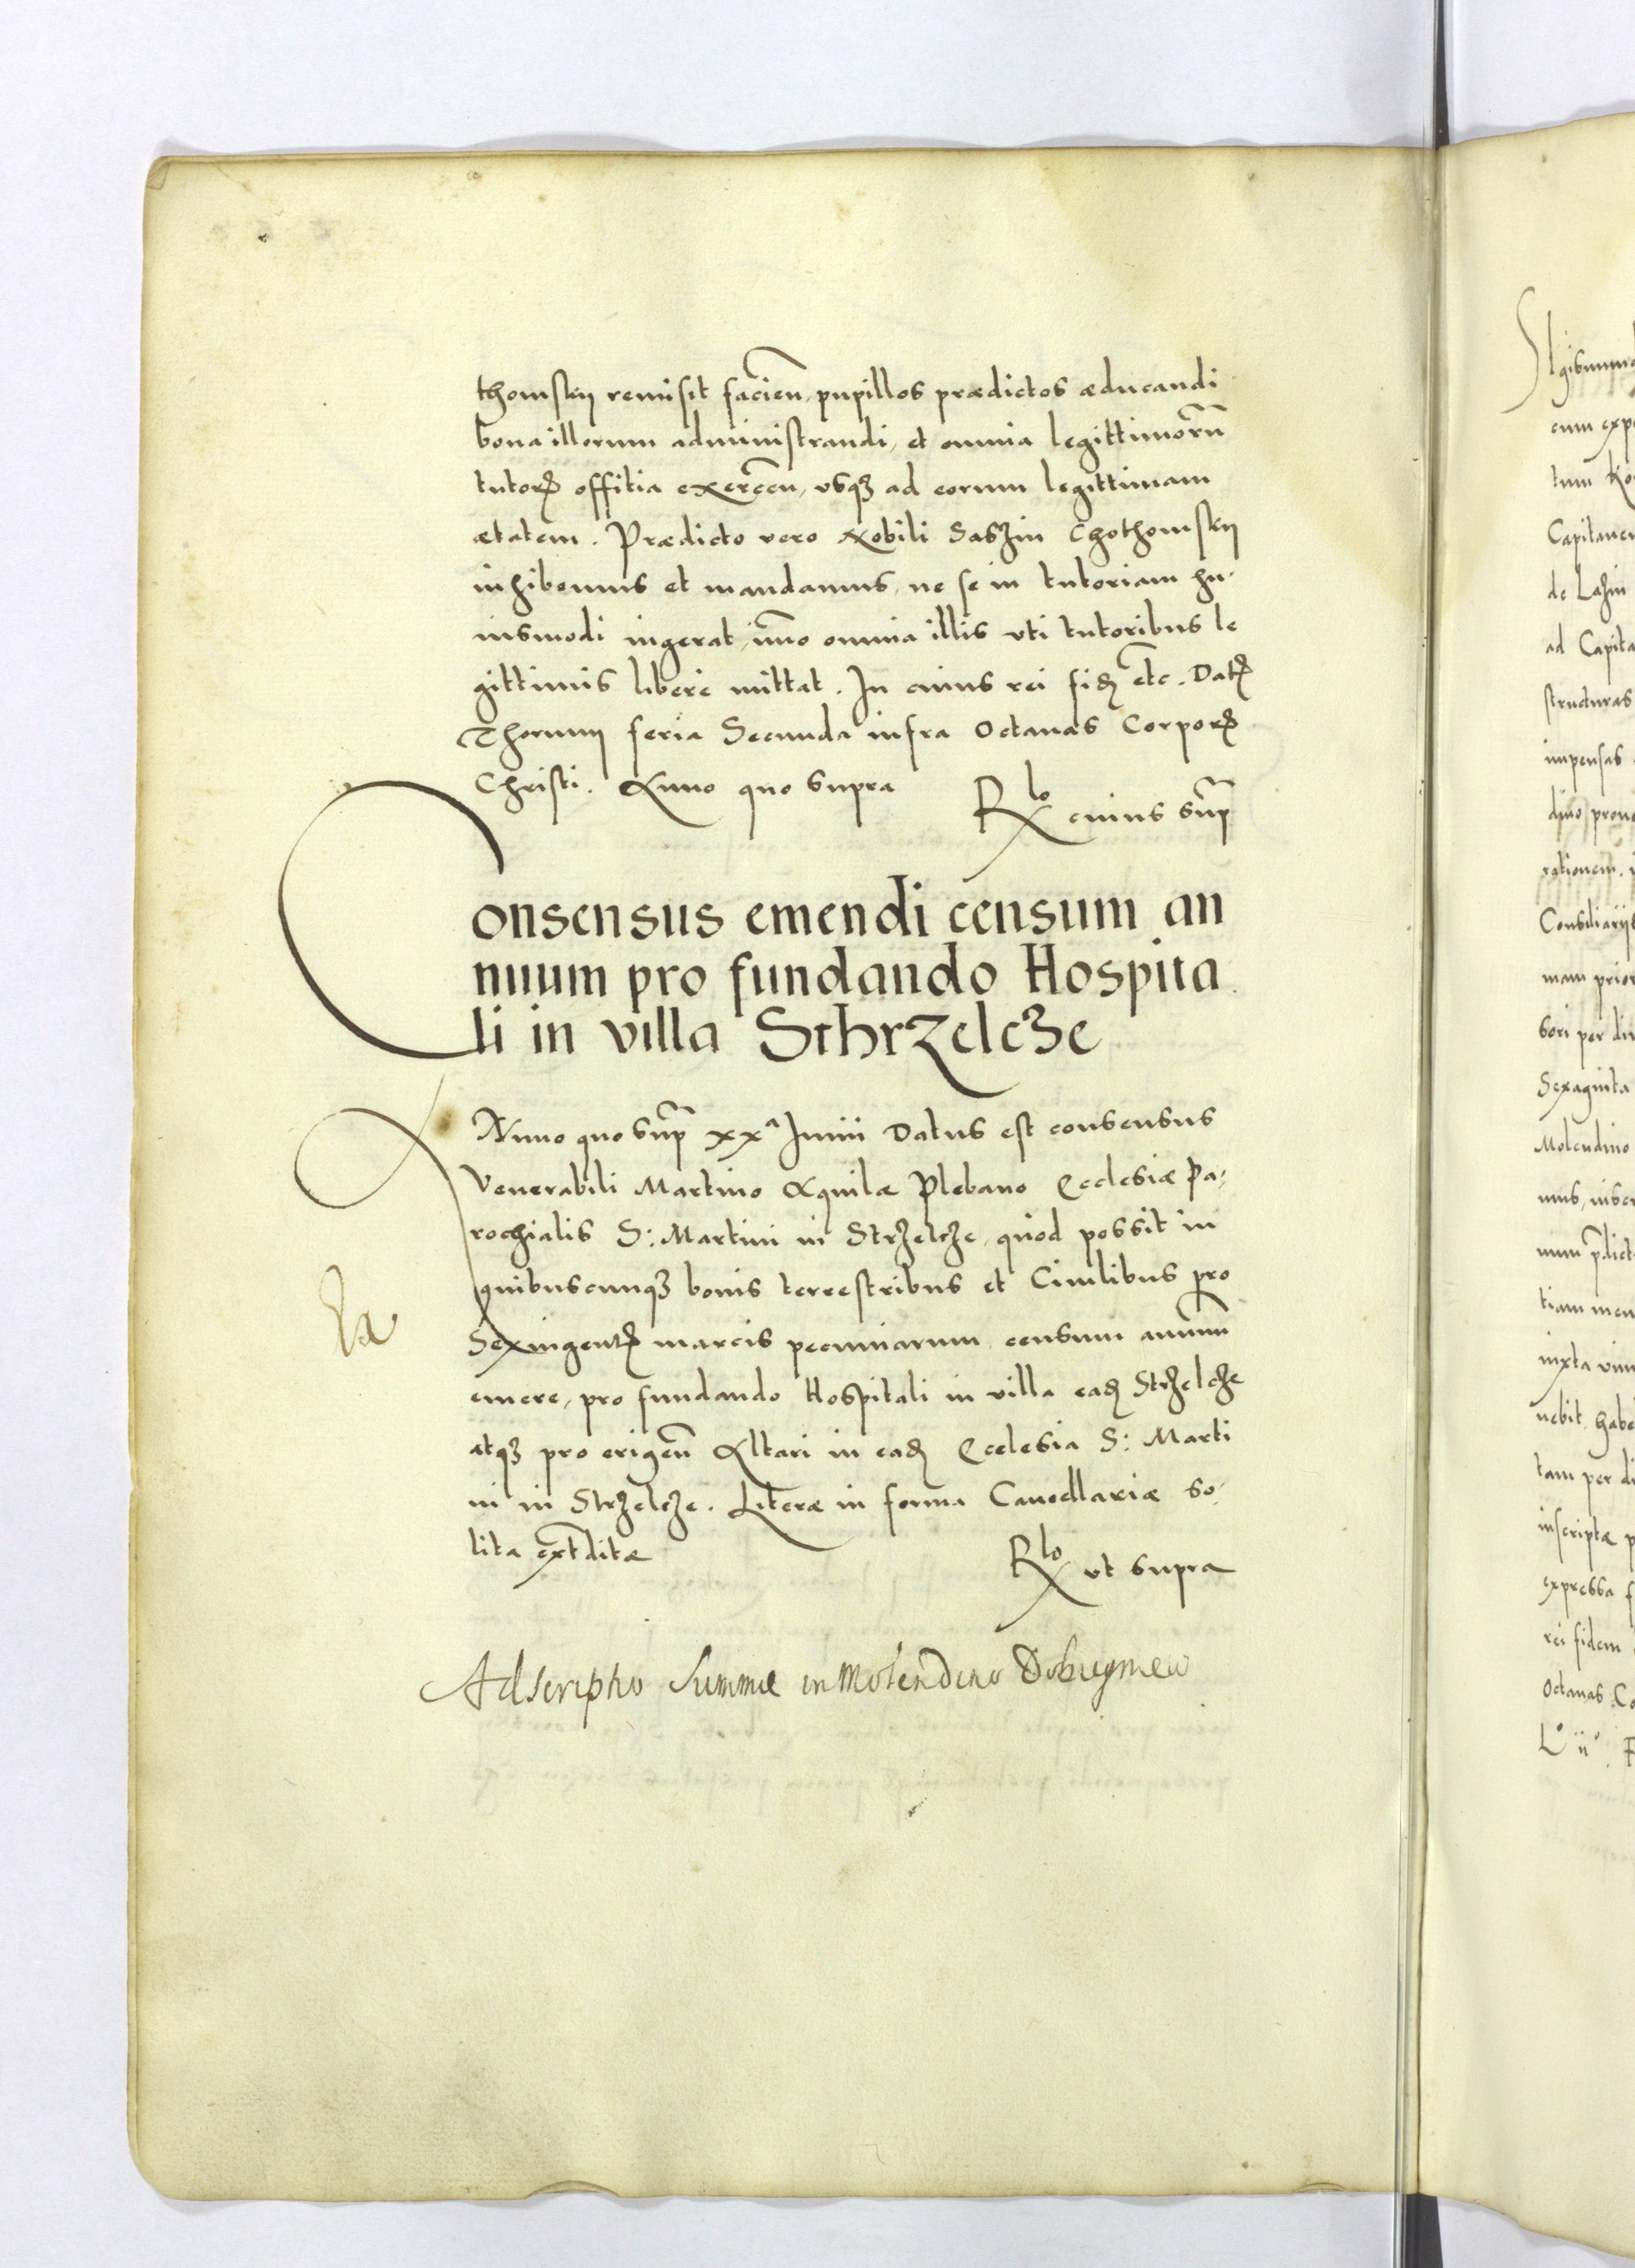 thomskij remisit facien̄, pupillos prædictos æducandi
bona illorum administrandi, et omnia legittimorū
tutorꝝ offitia exercen̄, usqꝫ ad eorum legittimam
ætatem. Prædicto vero Nobili Saszin Chothomskij
inhibemus et mandamus, ne se in tutoriam hu-
iusmodi ingerat, im̄o omnia illis uti tutoribus le
gittimis libere mittat. In cuius rei fidꝫ etc̄. Datꝫ
Thorunij feria Secunda infra Octauas Corporꝫ
Christi. Anno quo supra
Rlo cuius sup̄
Consensus emendi censum an
nuum pro fundando Hospita
li in villa Sthrzelcze
Anno quo sup̄ xxa Junii Datus est consensus
Venerabili Martino Aquilæ Plebano Ecclesiæ Pa-
rochialis S: Martini in Strzelcze, quod possit in
quibuscunqꝫ bonis terrestribus et Ciuilibus pro
Sexingentꝫ marcis pecuniarum censum annuū
emere, pro fundando Hospitali in villa eadꝫ Strzelcze
atqꝫ pro erigen̄ Altari in eadꝫ Ecclesia S: Marti
ni in Strzelcze. Literæ in forma Cancellariæ so-
lita extditæ
Rlo ut supra
Adscriptio Summæ in Molendino Dobiegniew
Sigismund
cum exp
tum
Capitaneu
de Lazin
ad Capita
structuras
impensas
rationem
Consiliarijs
mam prior
sori per di
Sexaginta
Molendino
num p̄dict
tiam
iuxta vim
nebit, habe
tam per di
inscriptæ p
expressa f
rei fidem
Octauas Co